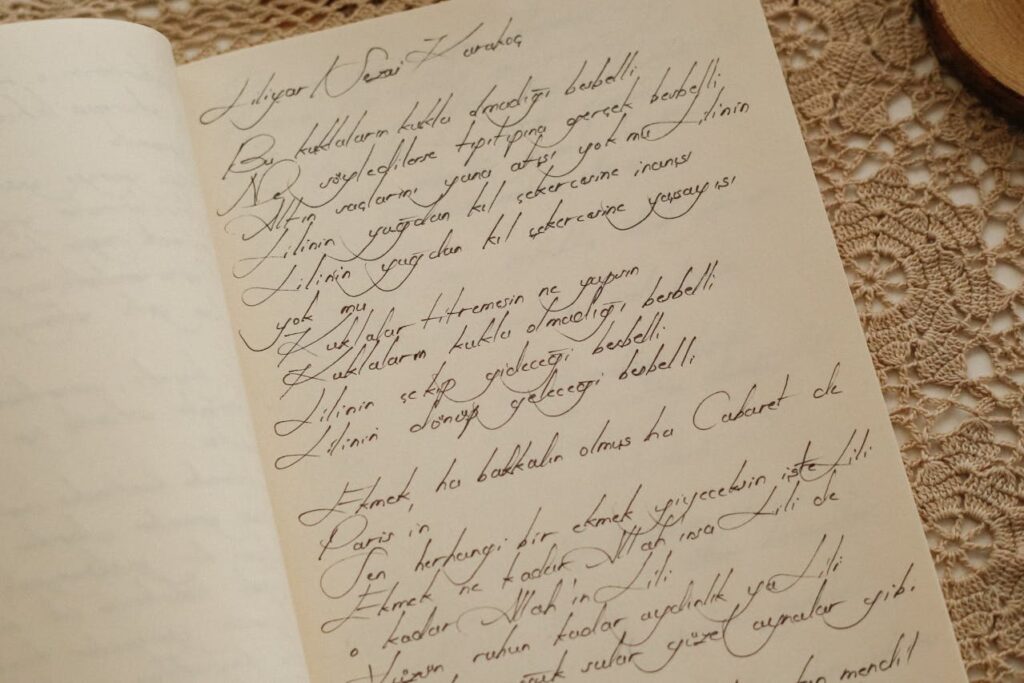 Liliyar / Sezai Karakoç
Bu kuklaların kukla olmadığı besbelli
Ne söyledilerse tıpıtıpına gerçek besbelli
Altın saçlarını yana atışı yok mu Lilinin
Lilinin yağdan kıl çekercesine inanışı
Lilinin yağdan kıl çekercesine yaşayışı
yok mu
Kuklalar titremesin ne yapsın
Kuklaların kukla olmadığı besbelli
Lilinin çekip gideceği besbelli
Lilinin dönüp geleceği besbelli
Ekmek ha bakkalın olmuş ha Cabaret de
Paris in
Sen herhangi bir ekmek yiyeceksin işte Lili
Ekmek ne kadar Allah'ınsa Lili de
o kadar Allah'ın Lili
Yüzün ruhun kadar aydınlık ya Lili
sular güzel aynalar gibi
mendil